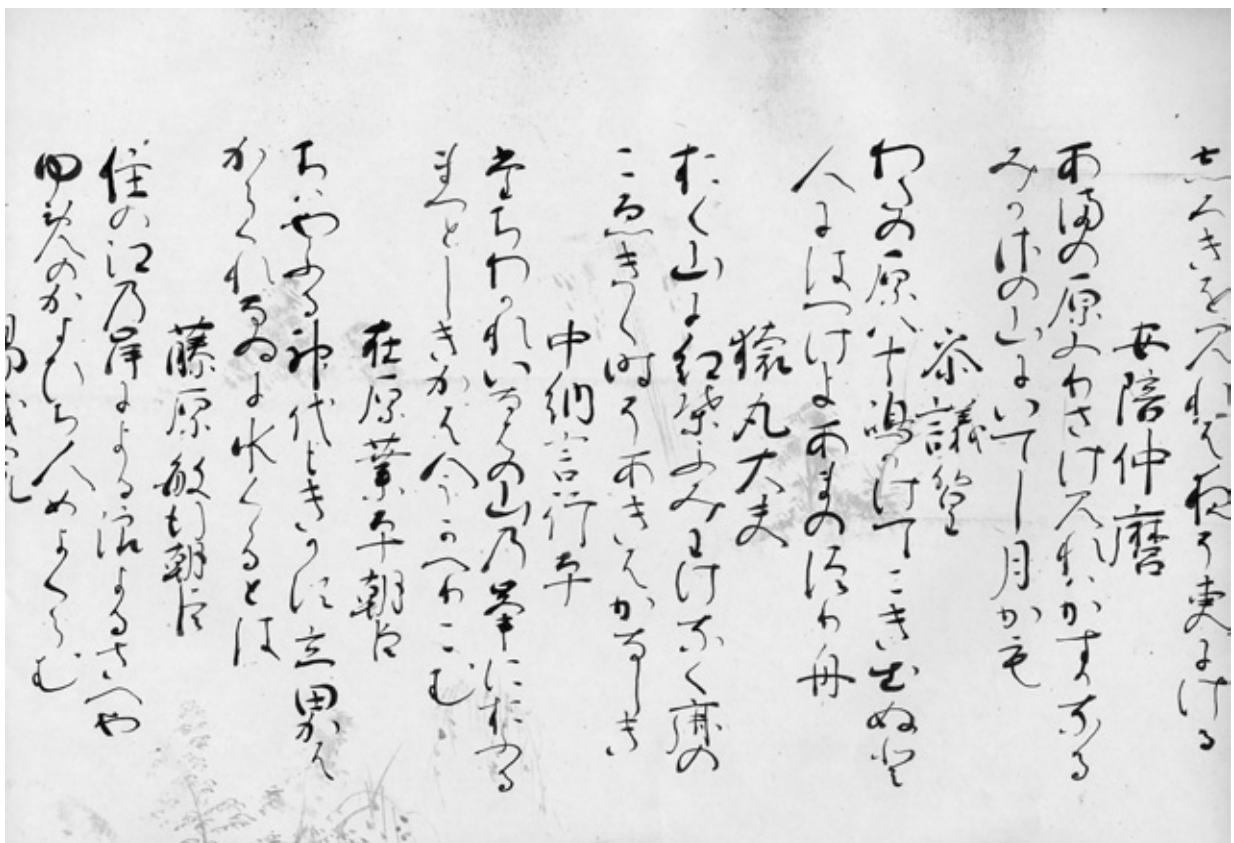 しろきを見れば夜そ更にける
安陪仲麿
あまの原ふりさけ見れはかすかなる
みかさの山にいてし月かも
参議篁
わたの原八十嶋かけてこき出ぬと
人にはつけよあまの浪り舟
猿丸大夫
おく山に紅葉ふみわけなく鹿の
こゑきく時そあきはかなしき
中納言行平
立ちわかれいなはの山乃峯におふる
まつとしきかは今かへりこむ
在原業平朝臣
ちはやふる神代もきかす立田かは
からくれなゐに水くくるとは
藤原敏行朝臣
住の江乃岸による浪よるさへや
ゆめのかよひち人めよくらむ